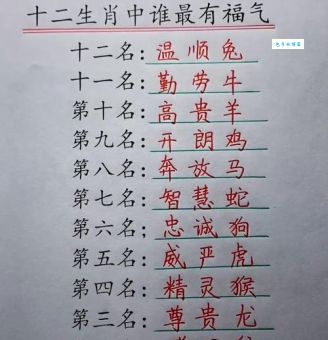 十二生肖中谁最有福气
十二名：温顺兔
十一名：勤劳牛
第十名：高贵羊
第九名：开朗鸡
第八名：奔放马
第七名：智慧蛇
第六名：忠诚狗
第五名：威严虎
第四名：精灵猴
第三名：尊贵龙